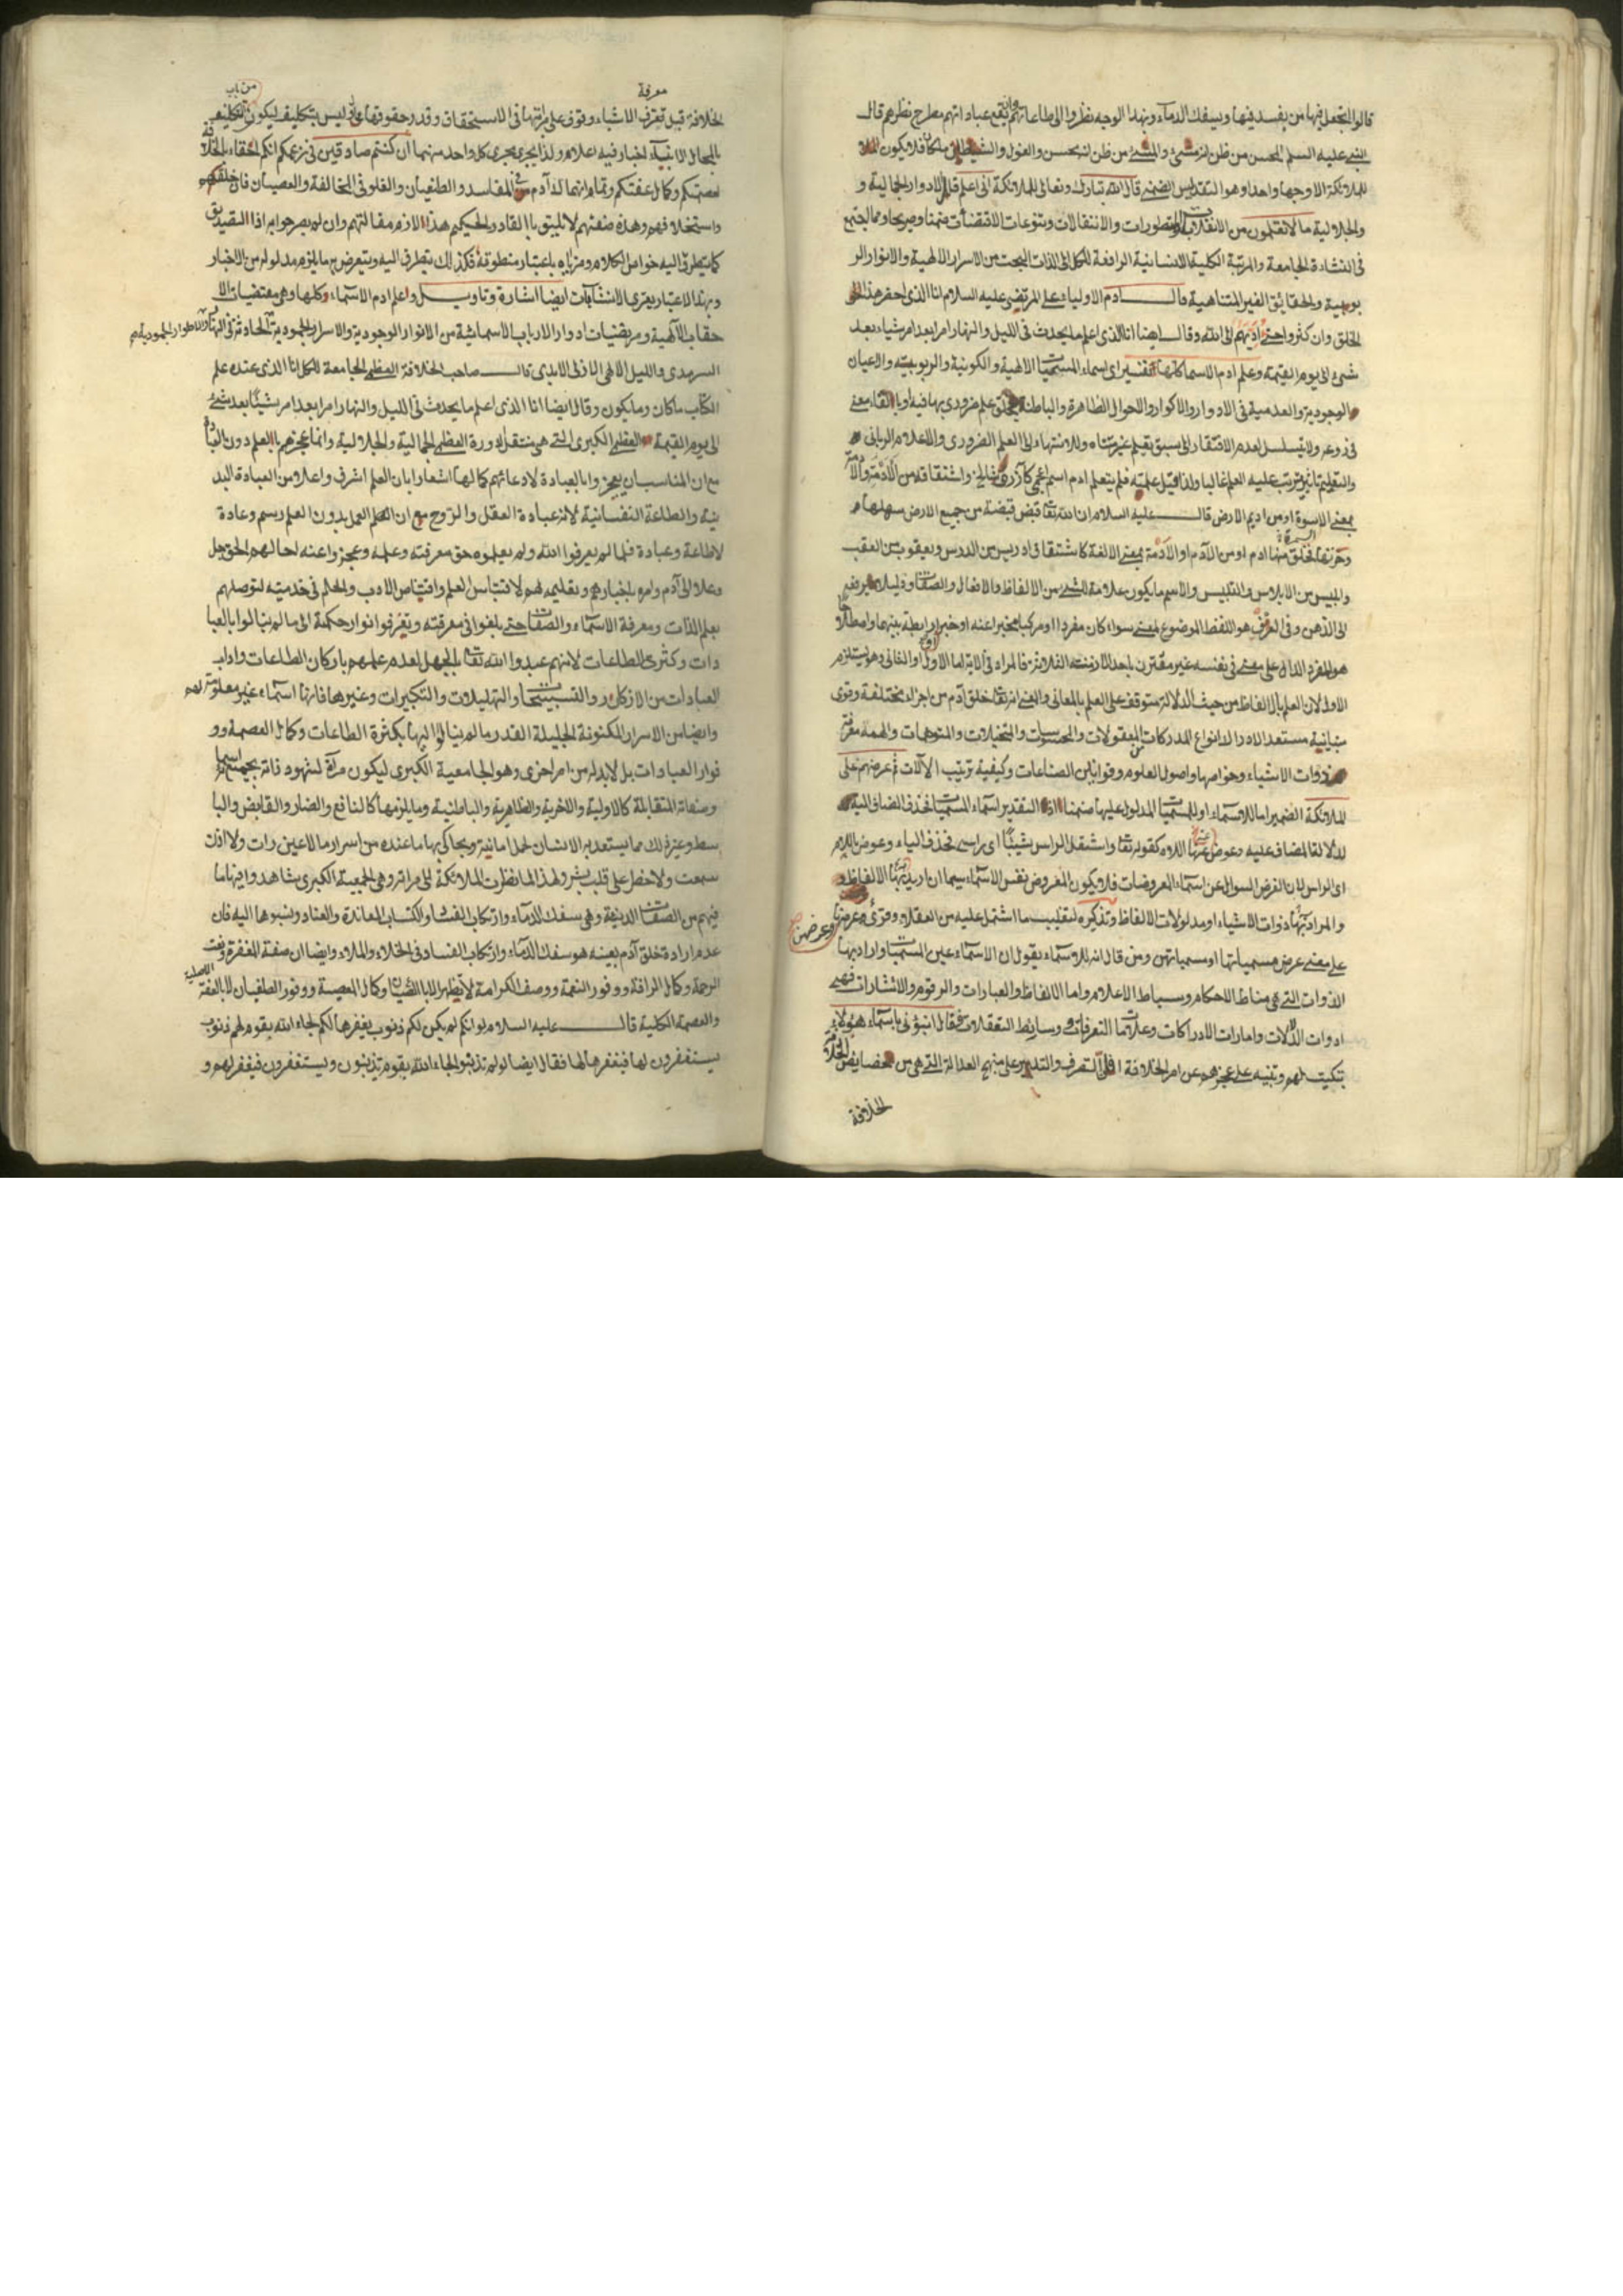 قالوا اتجعل فيها من يفسد فيها ويسفك الدماء وبهذا الوجه نظروا الى طاعاتهم وانه يقع عباداتهم مطرح نظرهم قال
النبي عليه السلم المحسن من ظن انه مسئ والمسئ من ظن انه يحسن والغول فلا يكون
للملائكة الا وجها واحدا وهو التقديس قال الله تبارك وتعالى للملائكة انى اعلم الادوار الجمالية و
والجلالية ما لا تعلمون من الانقلابات والتطورات والانتقالات وتنوعات الاقتضات ضمنا وصريحا ومما يجتمع
فى النشاءة الجامعة والمرتبة الكلية الانسانية الرافعة للكل الى الذات البحت من الاسرار الالهية والانوار الر
بوبية والحقائق الغير المتناهية قال ادم الاولياء على المرتضى عليه السلام انا الذى
الخلق وان كثروا حتى ادّيهم الى الله وقال ايضا انا الذى اعلم ما يحدث فى الليل والنهار امرا بعد امر شياء بعد
شئ الى يوم القيمة وعلم ادم الاسما كلها اى اسماء المسميات الالهية والكونية والربوبية والاعيان
الوجودية والعدمية فى الادوار والاكوار والاحوال الظاهرة والباطنة علم ضرورى بها فيه او بالقاء معنى
فى روعه ولا يتسلسل لعدم الافتقار الى سبق تعليم غير متناه وللانتهاء الى العلم الضرورى والاعلام الربانى
والتعليم ما يترتب عليه العلم غالبا ولذا قيل علمته فلم يتعلم ادم اسم اعجمى كآزر وشالخ واشتقاقه من الأدمة والأدمة
بمعنى الاسوة او من اديم الارض قال عليه السلام ان الله تعا قبض قبضة من جميع الارض سهلها
وحزنها فخلق منها ادم او من الأدم او الأدمة بمعنى الالفة كاشتقاق ادريس من الدرس ويعقوب من العقب
وابليس من الابلاس والتلبيس والاسم ما يكون علامة للشئ من الالفاظ والافعال والصفات
الى الذهن وفى العرف هو اللفظ الموضوع لمعنى سواء كان مفردا او مركبا مخبرا عنه او خبرا او رابطة بينهما واصطلاحا
هو المفرد الدال على معنى فى نفسه غير مقترن باحد الازمنة الثلاثة فالمراد فى الآية اما الاول او الثانى وهو يستلزم
الاول لان العلم بالالفاظ من حيث الدلالة متوقف على العلم بالمعانى والمعنى انه تعا خلق آدم من اجزاء مختلفة وقوى
متباينة مستعد الادراك انواع المدركات من المعقولات والمحسوسات والمتخيلات والمتوهمات والهمه معرفة
ذوات الاشياء وخواصها واصول العلوم وقوانين الصناعات وكيفية ترتيب الآلات ثم عرضهم على
الملائكة الضمير اما للاسماء او للمسميات المدلول عليها ضمنا اذ التقدير اسماء المسميات فحذف المضاف اليه
لدلالة المضاف عليه وعوض عنها اللام كقوله تعا واشتعل الراس شيبًا اى راسى فحذف الياء وعوض باللام
اى الراس لان الغرض السوال عن اسماء المعروضات فلا يكون المعروض نفس الاسماء سيما ان اريد بها الالفاظ و
والمراد بها ذوات الاشياء او مدلولات الالفاظ وتذكيره لتغليب ما اشتمل عليه من العقلاء وقرئ عرضها
وعرضهن
على معنى عرض مسمياتها او مسمياتهن ومن قال انه للاسماء يقول ان الاسماء عين المسميات واراد بها
الذوات التى هى مناط الاحكام ومسباط الاعلام واما الالفاظ والعبارات والرقوم والاشارات فهى
ادوات الدلالات وامارات الادراكات وعلامات التعرفات ووسايط التعقلات فقال انبؤنى باسماء هؤلاء
تبكيت لهم وتنبيه على عجزهم عن امر الخلافة التصرف والتدبير على منهج العدالة التى هى من خصايص الخلافة
الخلافة
معرفة
من باب
الخلافة قبل تعرف الاشياء وقوف على مراتبها فى الاستحقاق وقدر حقوقها محال وليس بتكليف ليكون من التكليف
بالمحال الانباء اخبار فيه اعلام ولذا يجرى مجرى كل واحد منهما ان كنتم صادقين فى زعمكم انكم احقاء بالخلافة
لعصمتكم وكمال عفتكم وتمام آدم فى المفاسد والطغيان والغلو فى المخالفة والعصيان فان خلقهم
واستخلافهم وهذه صفتهم لا يليق بالقادر الحكيم هذا لازم مقالتهم وان لم يصرحوا به اذ التصديق
كما يتطرق اليه خواص الكلام ومزاياه باعتبار منطوقه فكذلك يتطرق اليه ويتعرض به ما يلزم مدلوله من الاخبار
وبهذا الاعتبار يعترى الانشاآت ايضا اشارة وتاويل واعلم ادم الاسماء كلها وهى مقتضيات الا
حقاب الآلهية ومرتضيات ادوار الارباب الاسمائية من الانوار الوجودية والاسرار الجمودية الحادثة فى النهار
السرمدى والليل الالهى الازلى الابدى قال صاحب الخلافة العظمى الجامعة للكل انا الذى عنده علم
الكتاب ما كان وما يكون وقال ايضا انا الذى اعلم ما يحدث فى الليل والنهار امرا بعد امر شيئًا بعد شئ
الى يوم القيمة العظمى الكبرى التى هى منتقل دورة العظمى الجمالية والجلالية وانما عجزهم بالعلم دون العبادة
مع ان المناسب ان يعجزوا بالعبادة لادعائهم كمالها اشعارا بان العلم اشرف واعلا من العبادة البد
نية والطاعة النفسانية لانه عبادة العقل والروح مع ان العمل بدون العلم رسم وعادة
لا طاعة وعبادة فلما لم يعرفوا الله ولم يعلموه حق معرفته وعلمه وعجزوا عنه احالهم الحق جل
وعلا الى آدم وامره باخبارهم وتعليمه لهم لاقتباس العلم واقتناص الادب والحلم فى خدمته لتوصلهم
بعلم الذات ومعرفة الاسماء والصفات حتى بلغوا فى معرفته وتعرفوا انوار حكمة الى ما لم ينالوا بالعبا
دات وكثرة الطاعات لانهم عبدوا الله تعا بالجهل لعدم علمهم باركان الطاعات واداب
العبادات من الاذكار والتسبيحات والتهليلات والتكبيرات وغيرها فانها اسماء غير معلومة لهم
وايضا من الاسرار المكنونة الجليلة القدر ما لم ينالوا اليها بكثرة الطاعات وكمال العصمة وو
فور العبادات بل لا بد له من امر اخرى وهو الجامعية الكبرى ليكون مرآة لشهود ذاته بجميع اسمائه
وصفاته المتقابلة كالاولية والاخرية والظاهرية والباطنية وما يلزمها كالنافع والضار والقابض والبا
سط وغير ذلك مما يستعد به الانسان لحمل امانته ويحاكى بها ما عنده من اسرار ما لا عين رات ولا اذن
سمعت ولا خطر على قلب بشر ولهذا لما نظرت الملائكة الى مراته وهى الجمعية الكبرى شاهدوا فيها ما
فيهم من الصفات الدنيئة وهى سفك الدماء وارتكاب الفساد واكتساب المعاندة والعناد ونسبوها اليه فان
عدم ارادة خلق آدم بعينه هو سفك الدماء وارتكاب الفساد فى الخلاء والملاء وايضا ان صفة المغفرة ونعت
الرحمة وكمال الرافة ووفور النعمة ووصف الكرامة لا يظهر الا بالعصيان وكمال المعصية ووفور الطغيان لا بالعفة الاصلية
والعصمة الكلية قال عليه السلام لو انكم لم يكن لكم ذنوب يغفرها لكم لجاء الله بقوم لهم ذنوب
يستغفرون لها فيغفرها لها فقال ايضا لو لم تذنبوا لجاء الله بقوم يذنبون ويستغفرون فيغفر لهم و